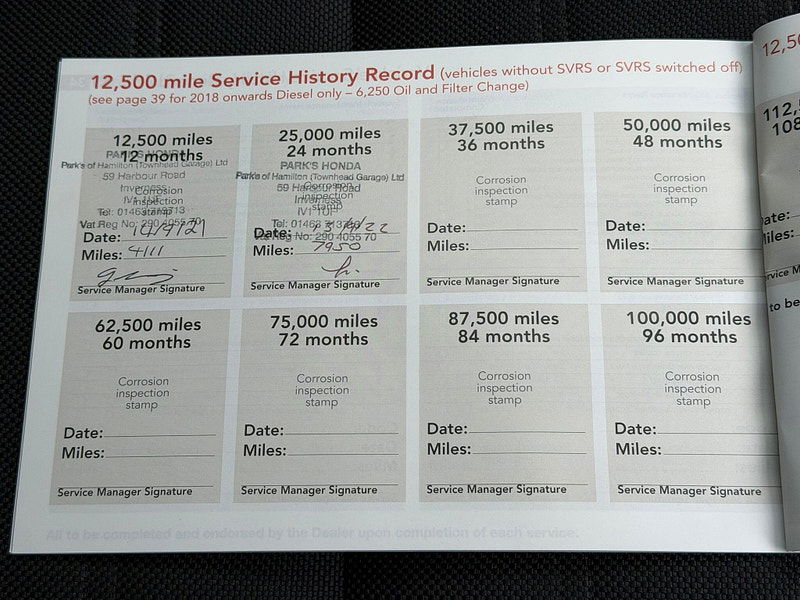 12,500 mile Service History Record (vehicles without SVRS or SVRS switched off)
(see page 39 for 2018 onwards Diesel only – 6,250 Oil and Filter Change)
12,500 miles
12 months
PARK'S HONDA
Park's of Hamilton (Townhead Garage) Ltd
59 Harbour Road
Inverness
Corrosion
inspection
stamp
IV1 1UF
Tel: 01463
Vat Reg No: 290 4055 70
Date: 14/9/21
Miles: 4111
Service Manager Signature
25,000 miles
24 months
PARK'S HONDA
Park's of Hamilton (Townhead Garage) Ltd
59 Harbour Road
Inverness
Corrosion
inspection
stamp
IV1 1UF
Tel: 01463
Vat Reg No: 290 4055 70
Date:
Miles: 7950
Service Manager Signature
37,500 miles
36 months
Corrosion
inspection
stamp
Date:
Miles:
Service Manager Signature
50,000 miles
48 months
Corrosion
inspection
stamp
Date:
Miles:
Service Manager Signature
62,500 miles
60 months
Corrosion
inspection
stamp
Date:
Miles:
Service Manager Signature
75,000 miles
72 months
Corrosion
inspection
stamp
Date:
Miles:
Service Manager Signature
87,500 miles
84 months
Corrosion
inspection
stamp
Date:
Miles:
Service Manager Signature
100,000 miles
96 months
Corrosion
inspection
stamp
Date:
Miles:
Service Manager Signature
All to be completed and endorsed by the Dealer upon completion of each service.
12,50
112,
108
ate:
iles:
to be